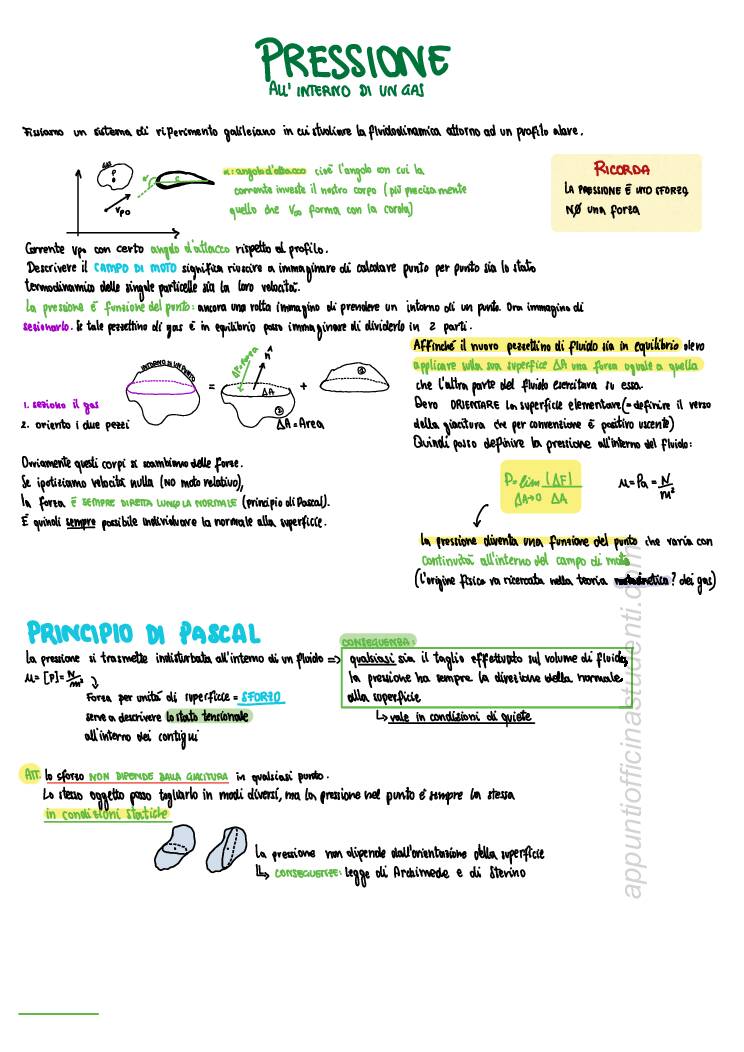 PRESSIONE
ALL' INTERNO DI UN GAS
Fissiamo un sistema di riferimento galileiano in cui studiare la fluidodinamica attorno ad un profilo alare.
GAS
P
c
V∞
α: angolo d'attacco cioè l'angolo con cui la
corrente investe il nostro corpo (più precisamente
quello che V∞ forma con la corda)
RICORDA
LA PRESSIONE È UNO SFORZO,
NO una forza
Corrente V∞ con certo angolo d'attacco rispetto al profilo.
Descrivere il CAMPO DI MOTO significa riuscire a immaginare di calcolare punto per punto sia lo stato
termodinamico delle singole particelle sia la loro velocità.
La pressione è funzione del punto: ancora una volta immagino di prendere un intorno di un punto. Ora immagino di
sezionarlo. Se tale pezzettino di gas è in equilibrio posso immaginare di dividerlo in 2 parti.
INTORNO DI UN PUNTO
=
ΔF forza
n
ΔA
②
+
①
ΔA = Area
1. seziono il gas
2. oriento i due pezzi
Affinché il nuovo pezzettino di fluido sia in equilibrio devo
applicare sulla sua superfice ΔA una forza uguale a quella
che l'altra parte del fluido esercitava su essa.
Devo ORIENTARE la superficie elementare (= definire il verso
della giacitura che per convenzione è positivo uscente)
Quindi posso definire la pressione all'interno del fluido:
P = lim |ΔF|
ΔA→0 ΔA
u = Pa = N/m²
Ovviamente questi corpi si scambiano delle forze.
Se ipotizziamo velocità nulla (no moto relativo),
la forza È SEMPRE DIRETTA LUNGO LA NORMALE (principio di Pascal).
È quindi sempre possibile individuare la normale alla superficie.
La pressione diventa una funzione del punto che varia con
continuità all'interno del campo di moto
(L'origine fisica va ricercata nella teoria ? dei gas)
PRINCIPIO DI PASCAL
La pressione si trasmette indisturbata all'interno di un fluido =>
u = [P] = N/m²
Forza per unità di superficie = SFORZO
serve a descrivere lo stato tensionale
all'interno dei contigui
CONSEGUENZA:
qualsiasi sia il taglio effettuato sul volume di fluido,
la pressione ha sempre la direzione della normale
alla superficie
↳ vale in condizioni di quiete
ATT. lo sforzo NON DIPENDE DALLA GIACITURA in qualsiasi punto.
Lo stesso oggetto posso tagliarlo in modi diversi, ma la pressione nel punto è sempre la stessa
in condizioni statiche
La pressione non dipende dall'orientazione della superficie
↳ CONSEGUENZE: legge di Archimede e di Stevino
appuntiofficinastudenti.com